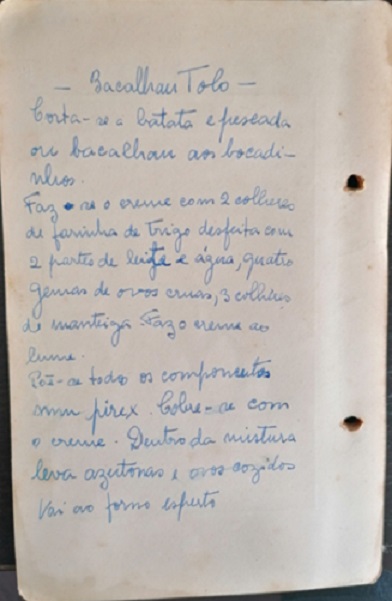 — Bacalhau Tolo —
Corta-se a batata e pescada
ou bacalhau aos bocadi-
nhos.
Faz-se o creme com 2 colheres
de farinha de trigo desfeita com
2 partes de leite e água, quatro
gemas de ovos cruas, 3 colheres
de manteiga. Faz o creme ao
lume.
Põe-se todos os componentes
num pirex. Cobre-se com
o creme. Dentro da mistura
leva azeitonas e ovos cozidos
Vai ao forno esperto